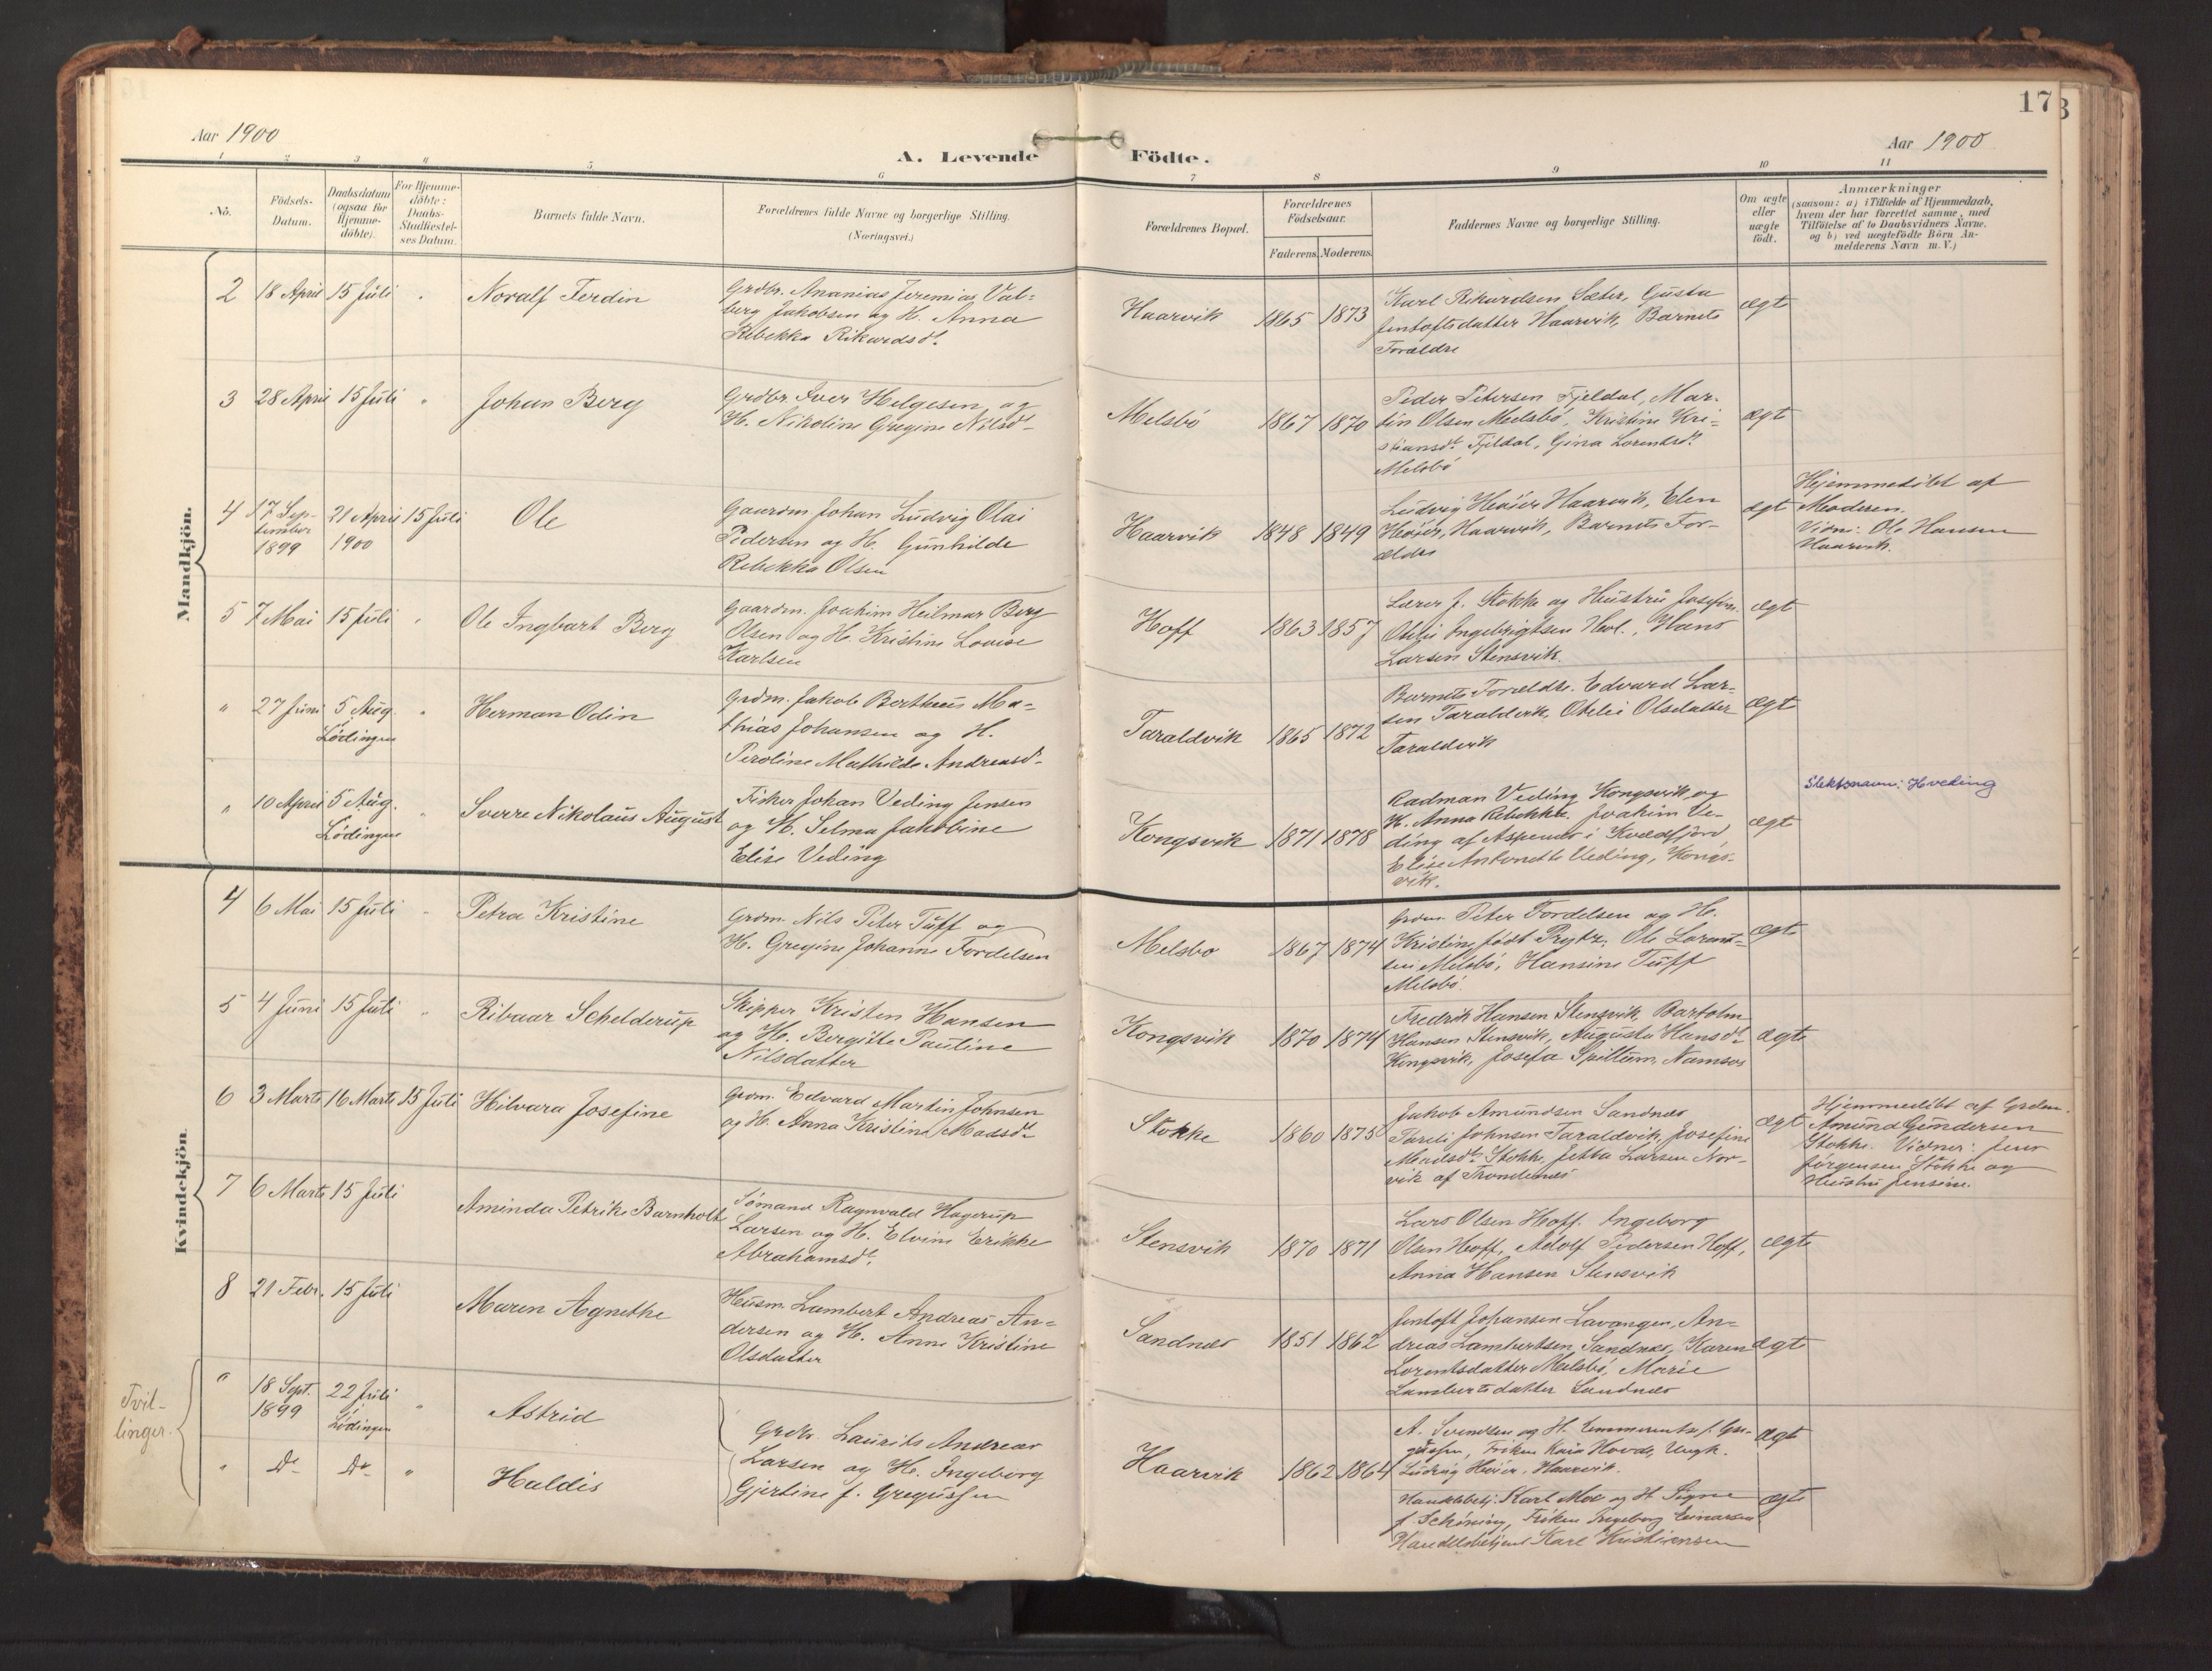 17
Aar 1900
A. Levende Födte.
Aar 1900
1 2 3 4 5 6 7 8 9 10 11
No.
Födsels-Datum.
Daabsdatum (ogsaa for Hjemme-döbte).
For Hjemme-döbte: Daabs-Stadfæstel-ses Datum.
Barnets fulde Navn.
Forældrenes fulde Navne og borgerlige Stilling.
(Næringsvei.)
Forældrenes Bopæl.
Forældrenes Födselsaar.
Faderens. Moderens.
Faddernes Navne og borgerlige Stilling.
Om ægte eller uægte födt.
Anmærkninger
(saasom: a) i Tilfælde af Hjemmedaab,
hvem der har forrettet samme, med
Tilföielse af to Daabsvidners Navne,
og b) ved uægtefödte Börn An-
melderens Navn m. V.)
Mandkjön.
2 18 April 15 Juli " Noralf Ferdin
Grdbr. Ananias Jeremias Val-
berg Jakobsen og H. Anna
Rebekka Rikardsd.
Haarvik 1865 1873
Karl Rikardsen Sæter, Gusta
Jentoftsdatter Haarvik, Barnets
Forældre
ægt
3 28 April 15 Juli " Johan Berg
Grdbr. Iver Helgesen og
H. Nikoline Gregine Nilsdt
Melsbö 1867 1870
Peder Petersen Fjeldal, Mar-
tin Olsen Melsbö, Kristine Kri-
stiansdt Fjeldal, Gina Lorentsdt
Melsbö
ægt
4 17 Sep-
tember
1899
21 April
1900
15 Juli
Ole
Gaardm Johan Ludvig Olai
Pedersen og H. Gunhilde
Rebekka Olsen
Haarvik 1848 1849
Ludvig Heöier Haarvik, Elen
Heöier, Haarvik, Barnets For-
ældre
ægt
Hjemmedöbt af
Moderen.
Vidn: Ole Hansen
Haarvik.
5 7 Mai 15 Juli " Ole Ingbart Berg
Gaardm. Joakim Heilmar Berg
Olsen og H. Kristine Louise
Karlsen
Hoff 1863 1857
Lærer J. Stokke og Hustru Josefine
Otelie Ingebrigtsen Hol., Hans
Larsen Stensvik.
ægt
" 27 Juni 5 Aug. " Herman Odin
Lödingen
Grdm. Jakob Bertheus Ma-
thias Johansen og H.
Peroline Mathilde Andreasdt
Taraldvik 1865 1872
Barnets Forældre. Edvard Lar-
sen Taraldvik, Otelie Olsdatter
Taraldvik
ægt
" 10 April 5 Aug. " Sverre Nikolaus August
Lödingen
Fisker Johan Veding Jensen
og H. Selma Jakobine
Elise Veding
Kongsvik 1871 1878
Radman Veding Kongsvik og
H. Anna Rebekka. Joakim Ve-
ding af Aspenes i Kvedfjord
Elise Antonette Veding, Kongs-
vik.
ægt
Slektsnavn: Hveding
Kvindekjön.
4 6 Mai 15 Juli " Petra Kristine
Grdm. Nils Peter Tuff og
H. Gregine Johanne Tordelsen
Melsbo 1867 1874
Grdm. Peter Tordelsen og H.
Kristine födt Prytz. Ole Lorent-
sen Melsbö, Hansine Tuff
Melsbö.
ægte
5 4 Juni 15 Juli " Ribaar Schelderup
Skipper Kristen Hansen
og H. Bergitte Pauline
Nilsdatter
Kongsvik 1870 1874
Fredrik Hansen Stensvik, Bartolm
Hansen Stensvik, Augusta Hansdt
Kongsvik, Josefa Spillum, Namsos
ægte
6 3 Marts 16 Marts 15 Juli Hilvara Josefine
Grdm. Edvard Martin Johnsen
og H. Anna Kristine Madsdt
Stokke 1860 1875
Jakob Amundsen Sandnes
Pareli Johnsen Taraldvik, Josefine
Madsdt Stokke, Jetta Larsen Nor-
vik af Trondenes
ægt
Hjemmedöbt af Grdm.
Amund Gundersen
Stokke. Vidner: Jens
Jørgensen Stokke og
Hustru Jensine.
7 6 Marts 15 Juli
Aminda Petrike Barnholt
Sömand Ragnvald Hagerup
Larsen og H. Elvine Erikke
Abrahamsdt.
Stensvik 1870 1871
Lars Olsen Hoff. Ingeborg
Olsen Hoff, Adolf Pedersen Hoff,
Anna Hansen Stensvik
ægte
8 21 Febr. 15 Juli
Maren Agnethe
Husm. Lambert Andreas An-
dersen og H. Anne Kristine
Olsdatter
Sandnes 1851 1862
Jentoft Johansen Lavangen, An-
dreas Lambertsen Sandnes, Karen
Lorentsdatter Melsbö, Marie
Lambertsdatter Sandnes
ægte
Tvil-
linger.
" 18 Sept.
1899
22 Juli
Lödingen
" Astrid
Grdbr. Laurits Andreas
Larsen og H. Ingeborg
Gjertine f. Gregussen
Haarvik 1862 1864
A. Svendsen og H. Emmerentse f. Gre-
gussen, Fröken Kaia Hovde, Ungk.
Ludvig Heöier, Haarvik.
ægte
" Do Do " Haldis
Handelsbetj. Karl Moe og H. Signe
f. Schöning, Fröken Ingeborg Einarsen
Handelsbetjent Karl Kristiansen
ægte